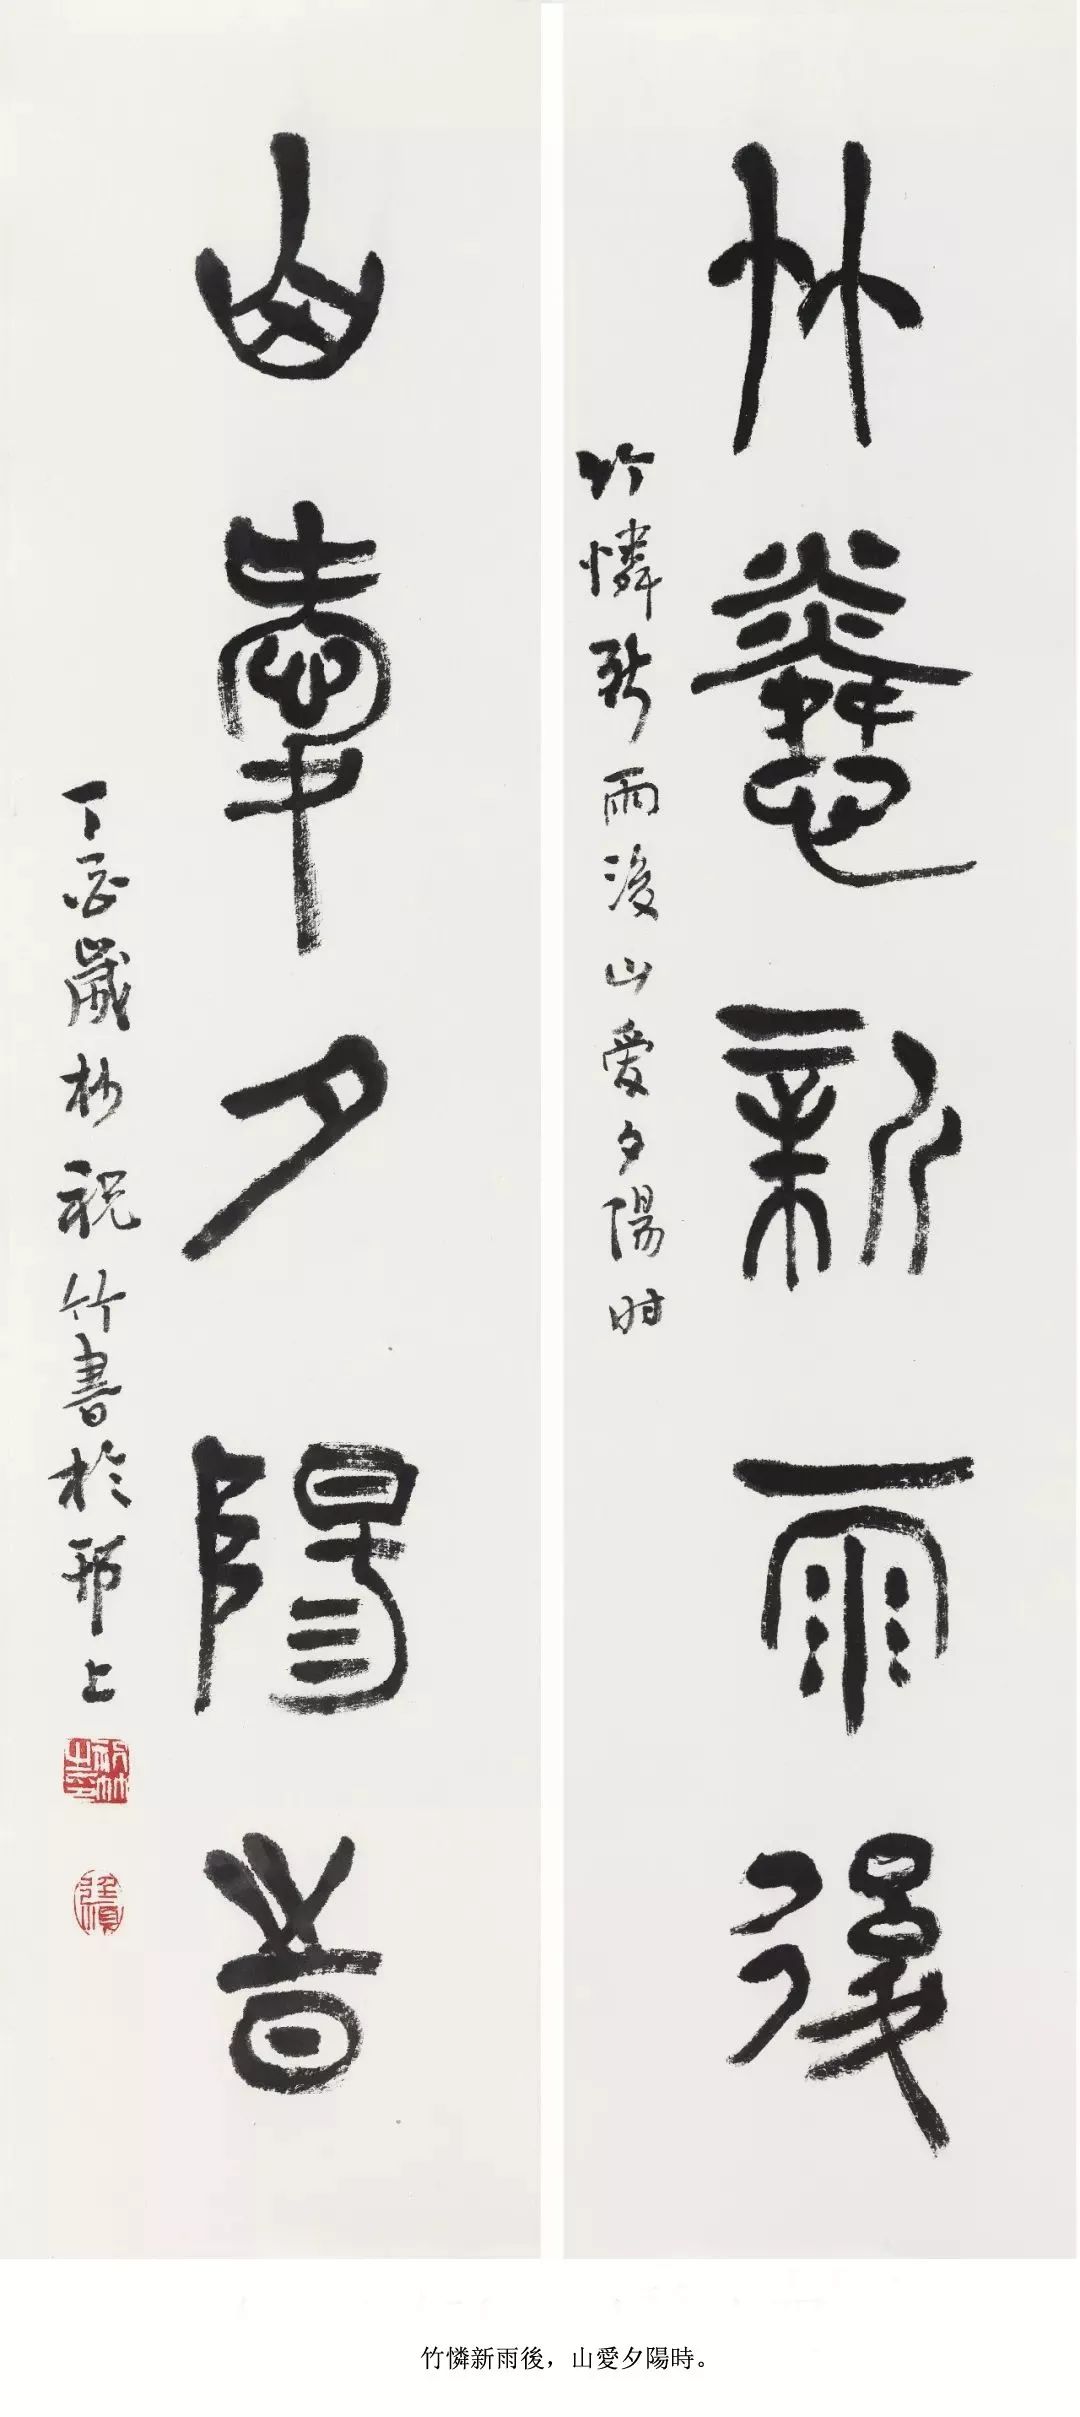 竹憐新雨後
竹憐新雨後山愛夕陽时
山愛夕陽時
丁酉歲杪祝竹書於邗上
竹憐新雨後，山愛夕陽時。